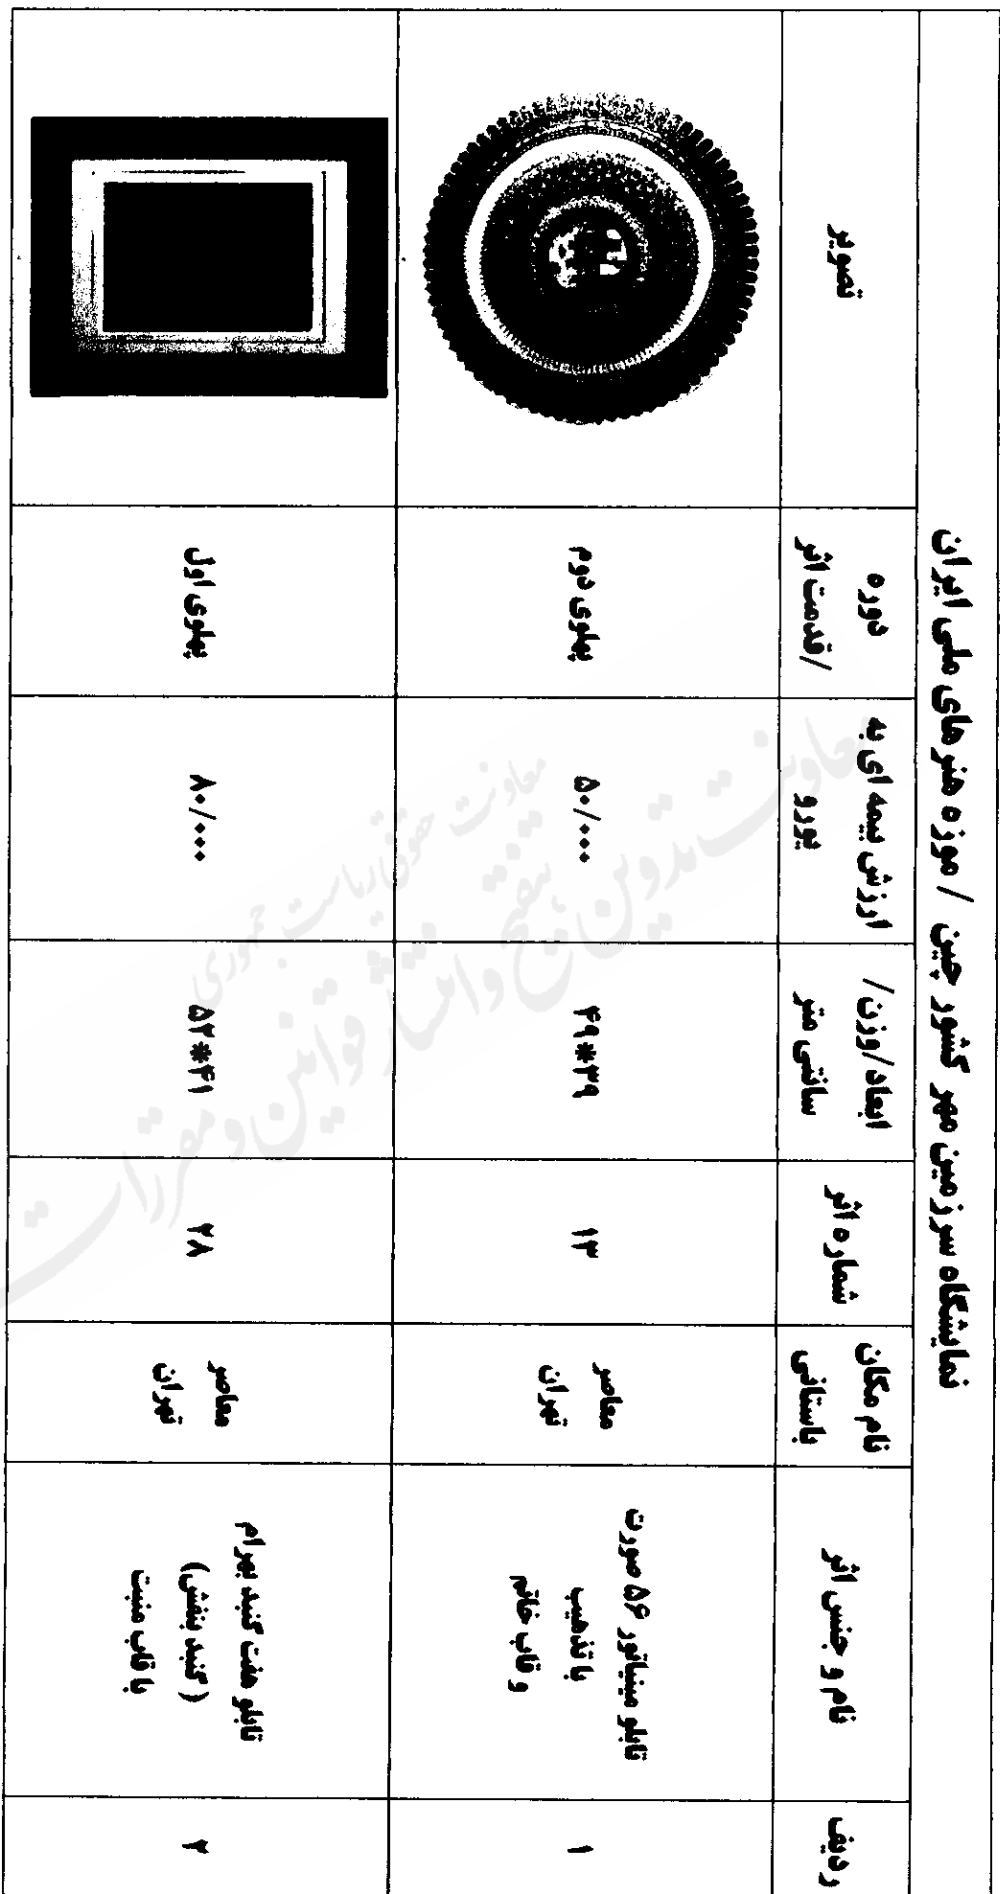 نمایشگاه سرزمین مهر کشور چین / موزه هنرهای ملی ایران
ردیف
نام و جنس اثر
نام مکان
باستانی
شماره اثر
ابعاد/وزن/
سانتی متر
ارزش بیمه ای به
یورو
دوره
/قدمت اثر
تصویر
۱
تابلو مینیاتور ۵۶ صورت
با تذهیب
و قاب خاتم
معاصر
تهران
۱۳
۴۹*۳۹
۵۰/۰۰۰
پهلوی دوم
۲
تابلو هفت گنبد بهرام
(گنبد بنفش)
با قاب منبت
معاصر
تهران
۲۸
۵۲*۴۱
۸۰/۰۰۰
پهلوی اول
معاونت تدوین، تنقیح و انتشار قوانین و مقررات
معاونت حقوقی ریاست جمهوری